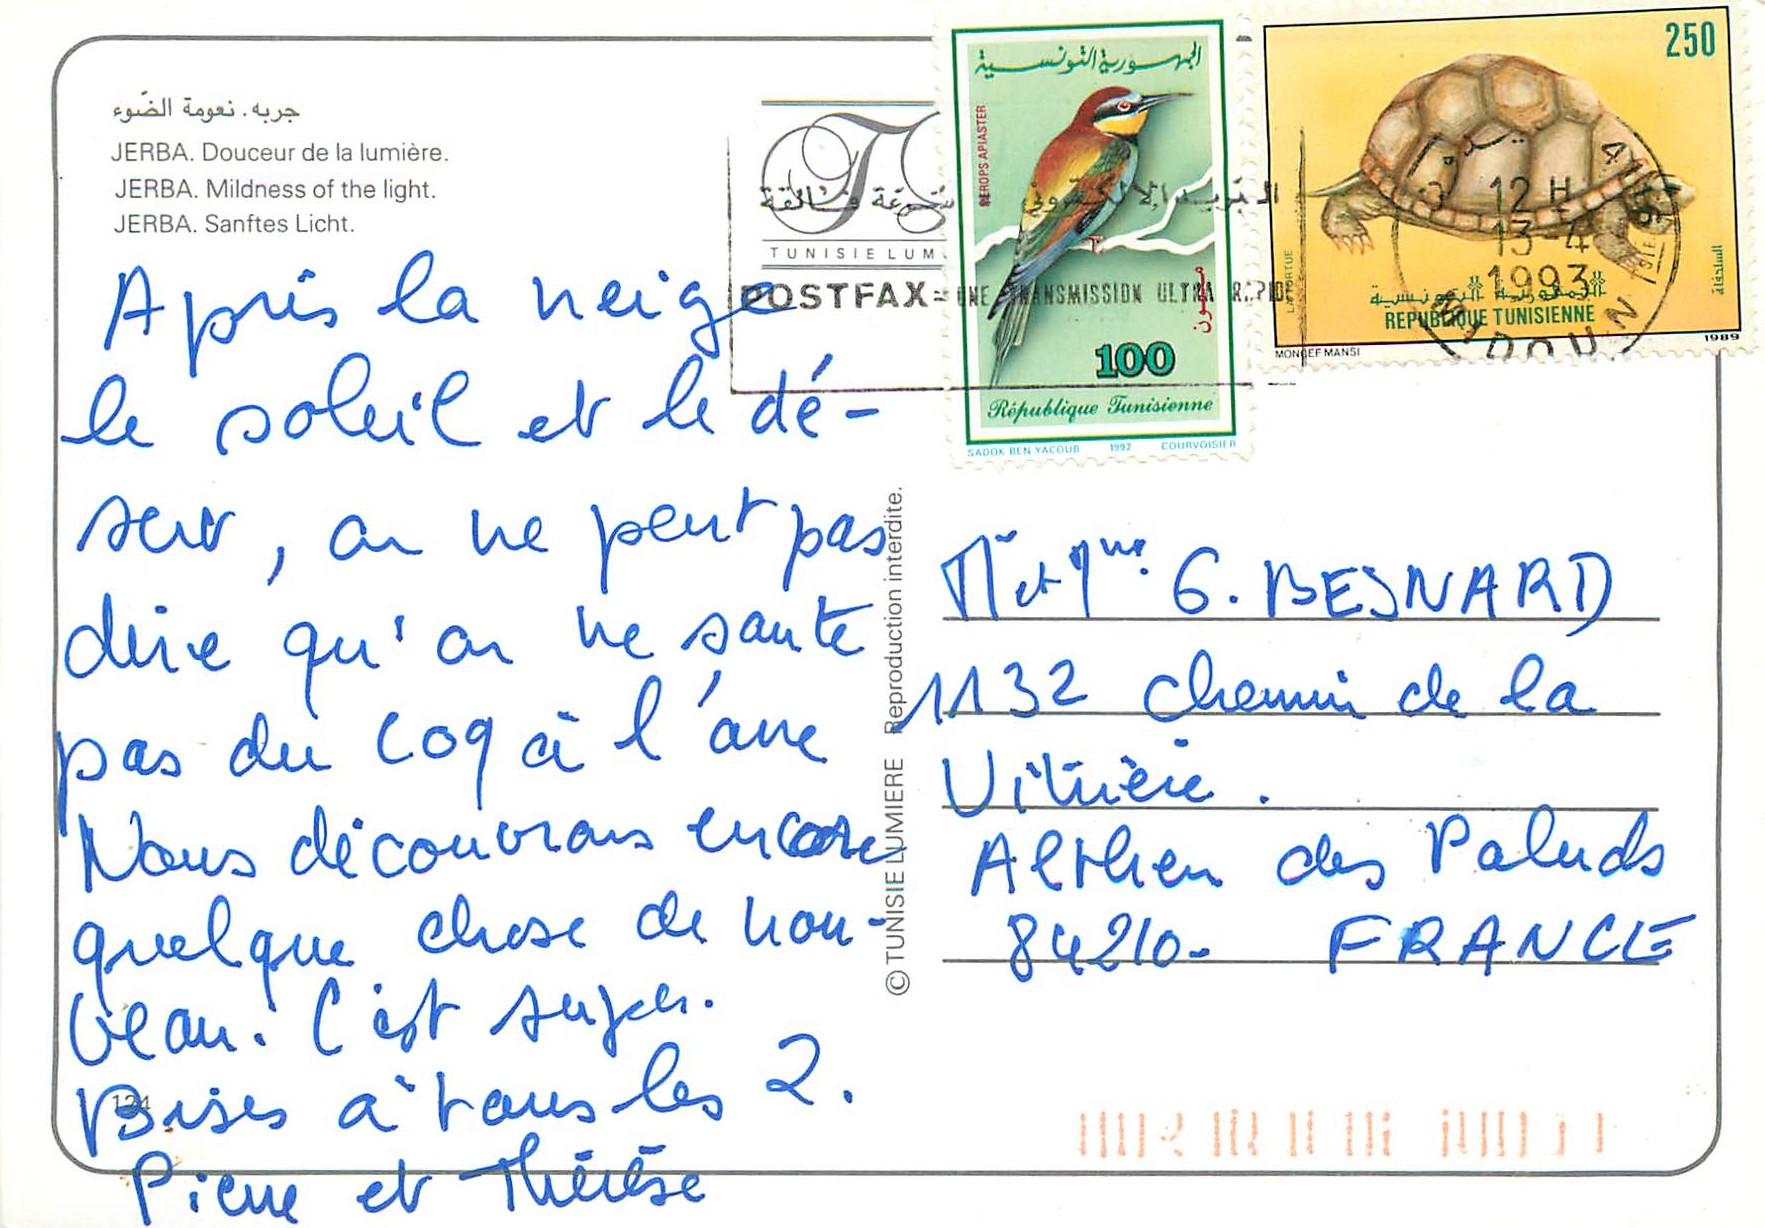 جربه. نعومة الضّوء
JERBA. Douceur de la lumière.
JERBA. Mildness of the light.
JERBA. Sanftes Licht.
Après la neige
le soleil et le dé-
sert, on ne peut pas
dire qu'on ne saute
pas du coq à l'âne
Nous découvrons encore
quelque chose de nou-
veau. C'est super.
Bises à tous les 2.
Pierre et Thérèse
124
TUNISIE LUM
البريد الالكتروني سرعة فائقة
POSTFAX= UNE TRANSMISSION ULTRA RAPIDE
© TUNISIE LUMIERE Reproduction interdite.
الجمهورية التونسية
MEROPS APIASTER
100
République Tunisienne
SADOK BEN YACOUB 1992 COURVOISIER
250
LA TORTUE
السلحفاة
الجمهورية التونسية
REPUBLIQUE TUNISIENNE
MONCEF MANSI
1989
12 H
13-4
1993
Mr et Mme G. BESNARD
1132 chemin de la
Vitrière.
Althen des Paluds
84210- FRANCE